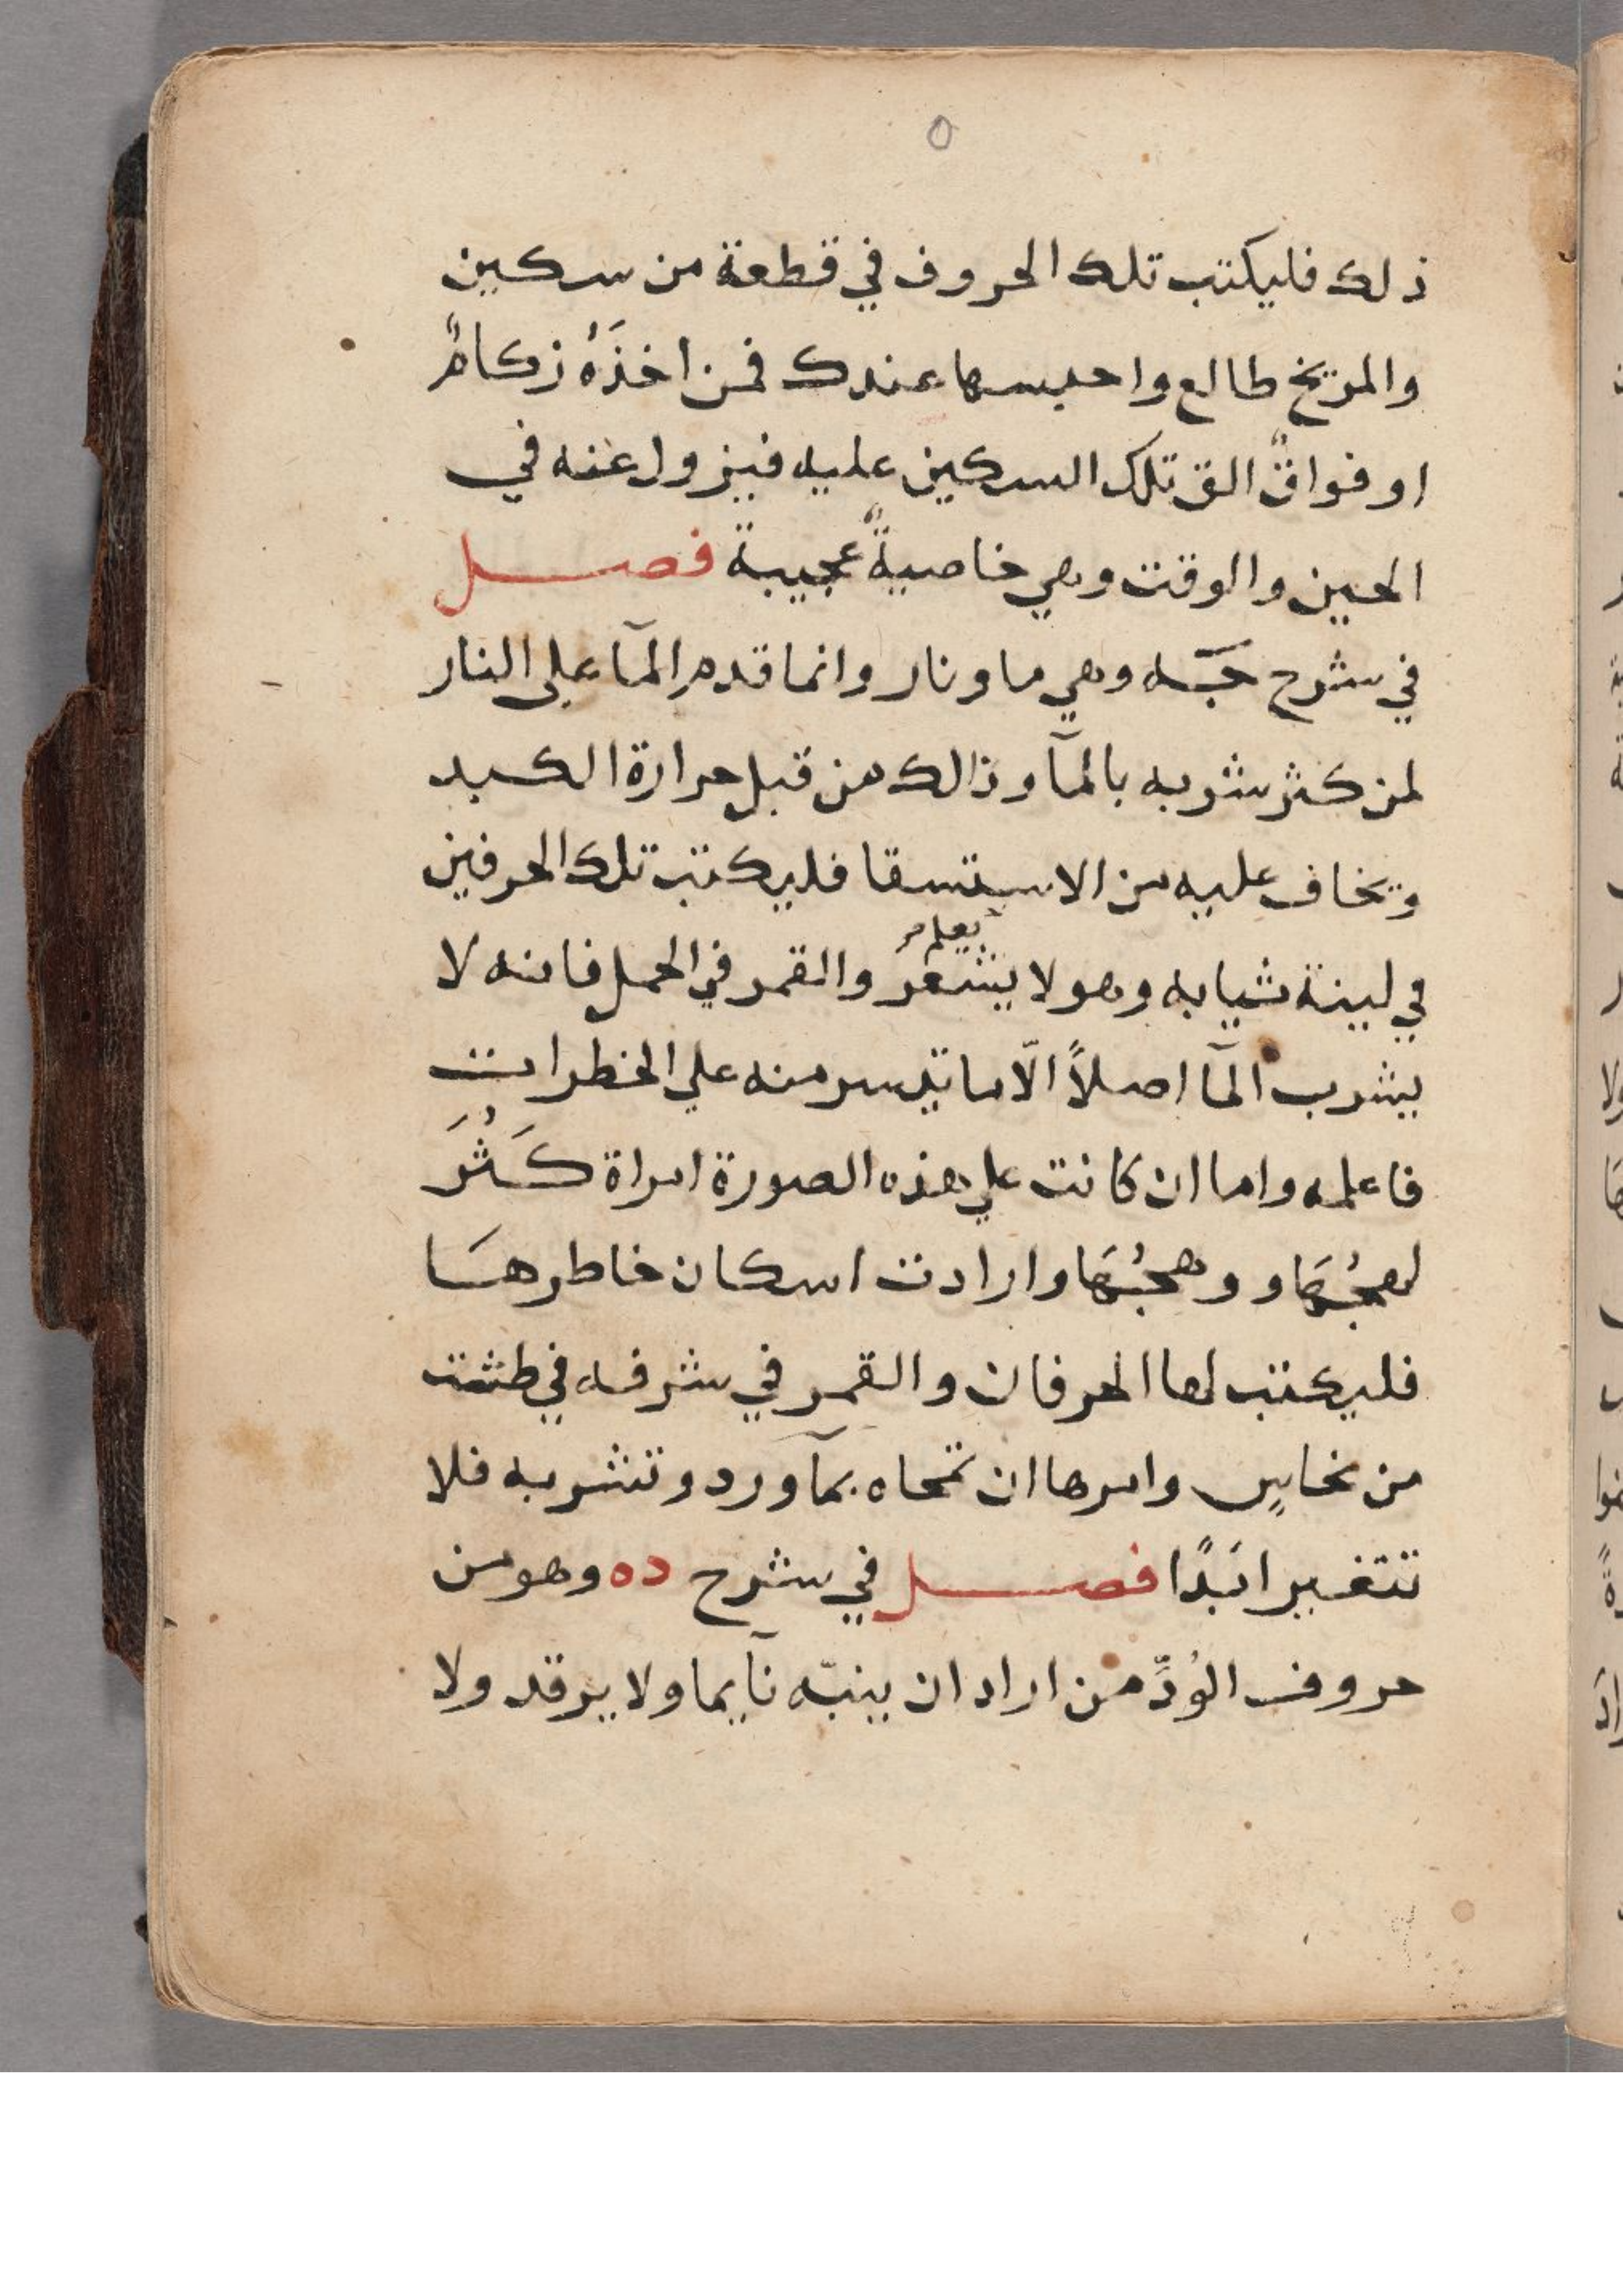 ٥
ذلك فليكتب تلك الحروف في قطعة من سكين
والمريخ طالع واحبسها عندك فمن اخذَهُ زكامٌ
او فواقٌ الق تلك السكين عليه فيزول عنه في
الحين والوقت وهي خاصيةٌ عجيبة فصل
في شرح وهي ما ونار وانما قدم المآ على النار
لمن كثر شربه بالمآ وذالك من قبل حرارة الكبد
ويخاف عليه من الاستسقا فليكتب تلك الحرفين
يعلم
في لبنة ثيابه وهو لا يشعر والقمر في الحمل فانه لا
يشرب المآ اصلاً الّا ما تيسر منه علي الخطرات
فاعلمه واما ان كانت علي هذه الصورة امراة كَثُرَ
وارادت اسكان خاطرهَا
فليكتب لها الحرفان والقمر في شرفه في طشت
من نحاسٍ وامرها ان تمحاه بمآ ورد وتشربه فلا
تتغير ابَدًا فصل في شرح ده وهو من
حروف الوُدِّ من اراد ان ينبّه نآيما ولا يرقد ولا